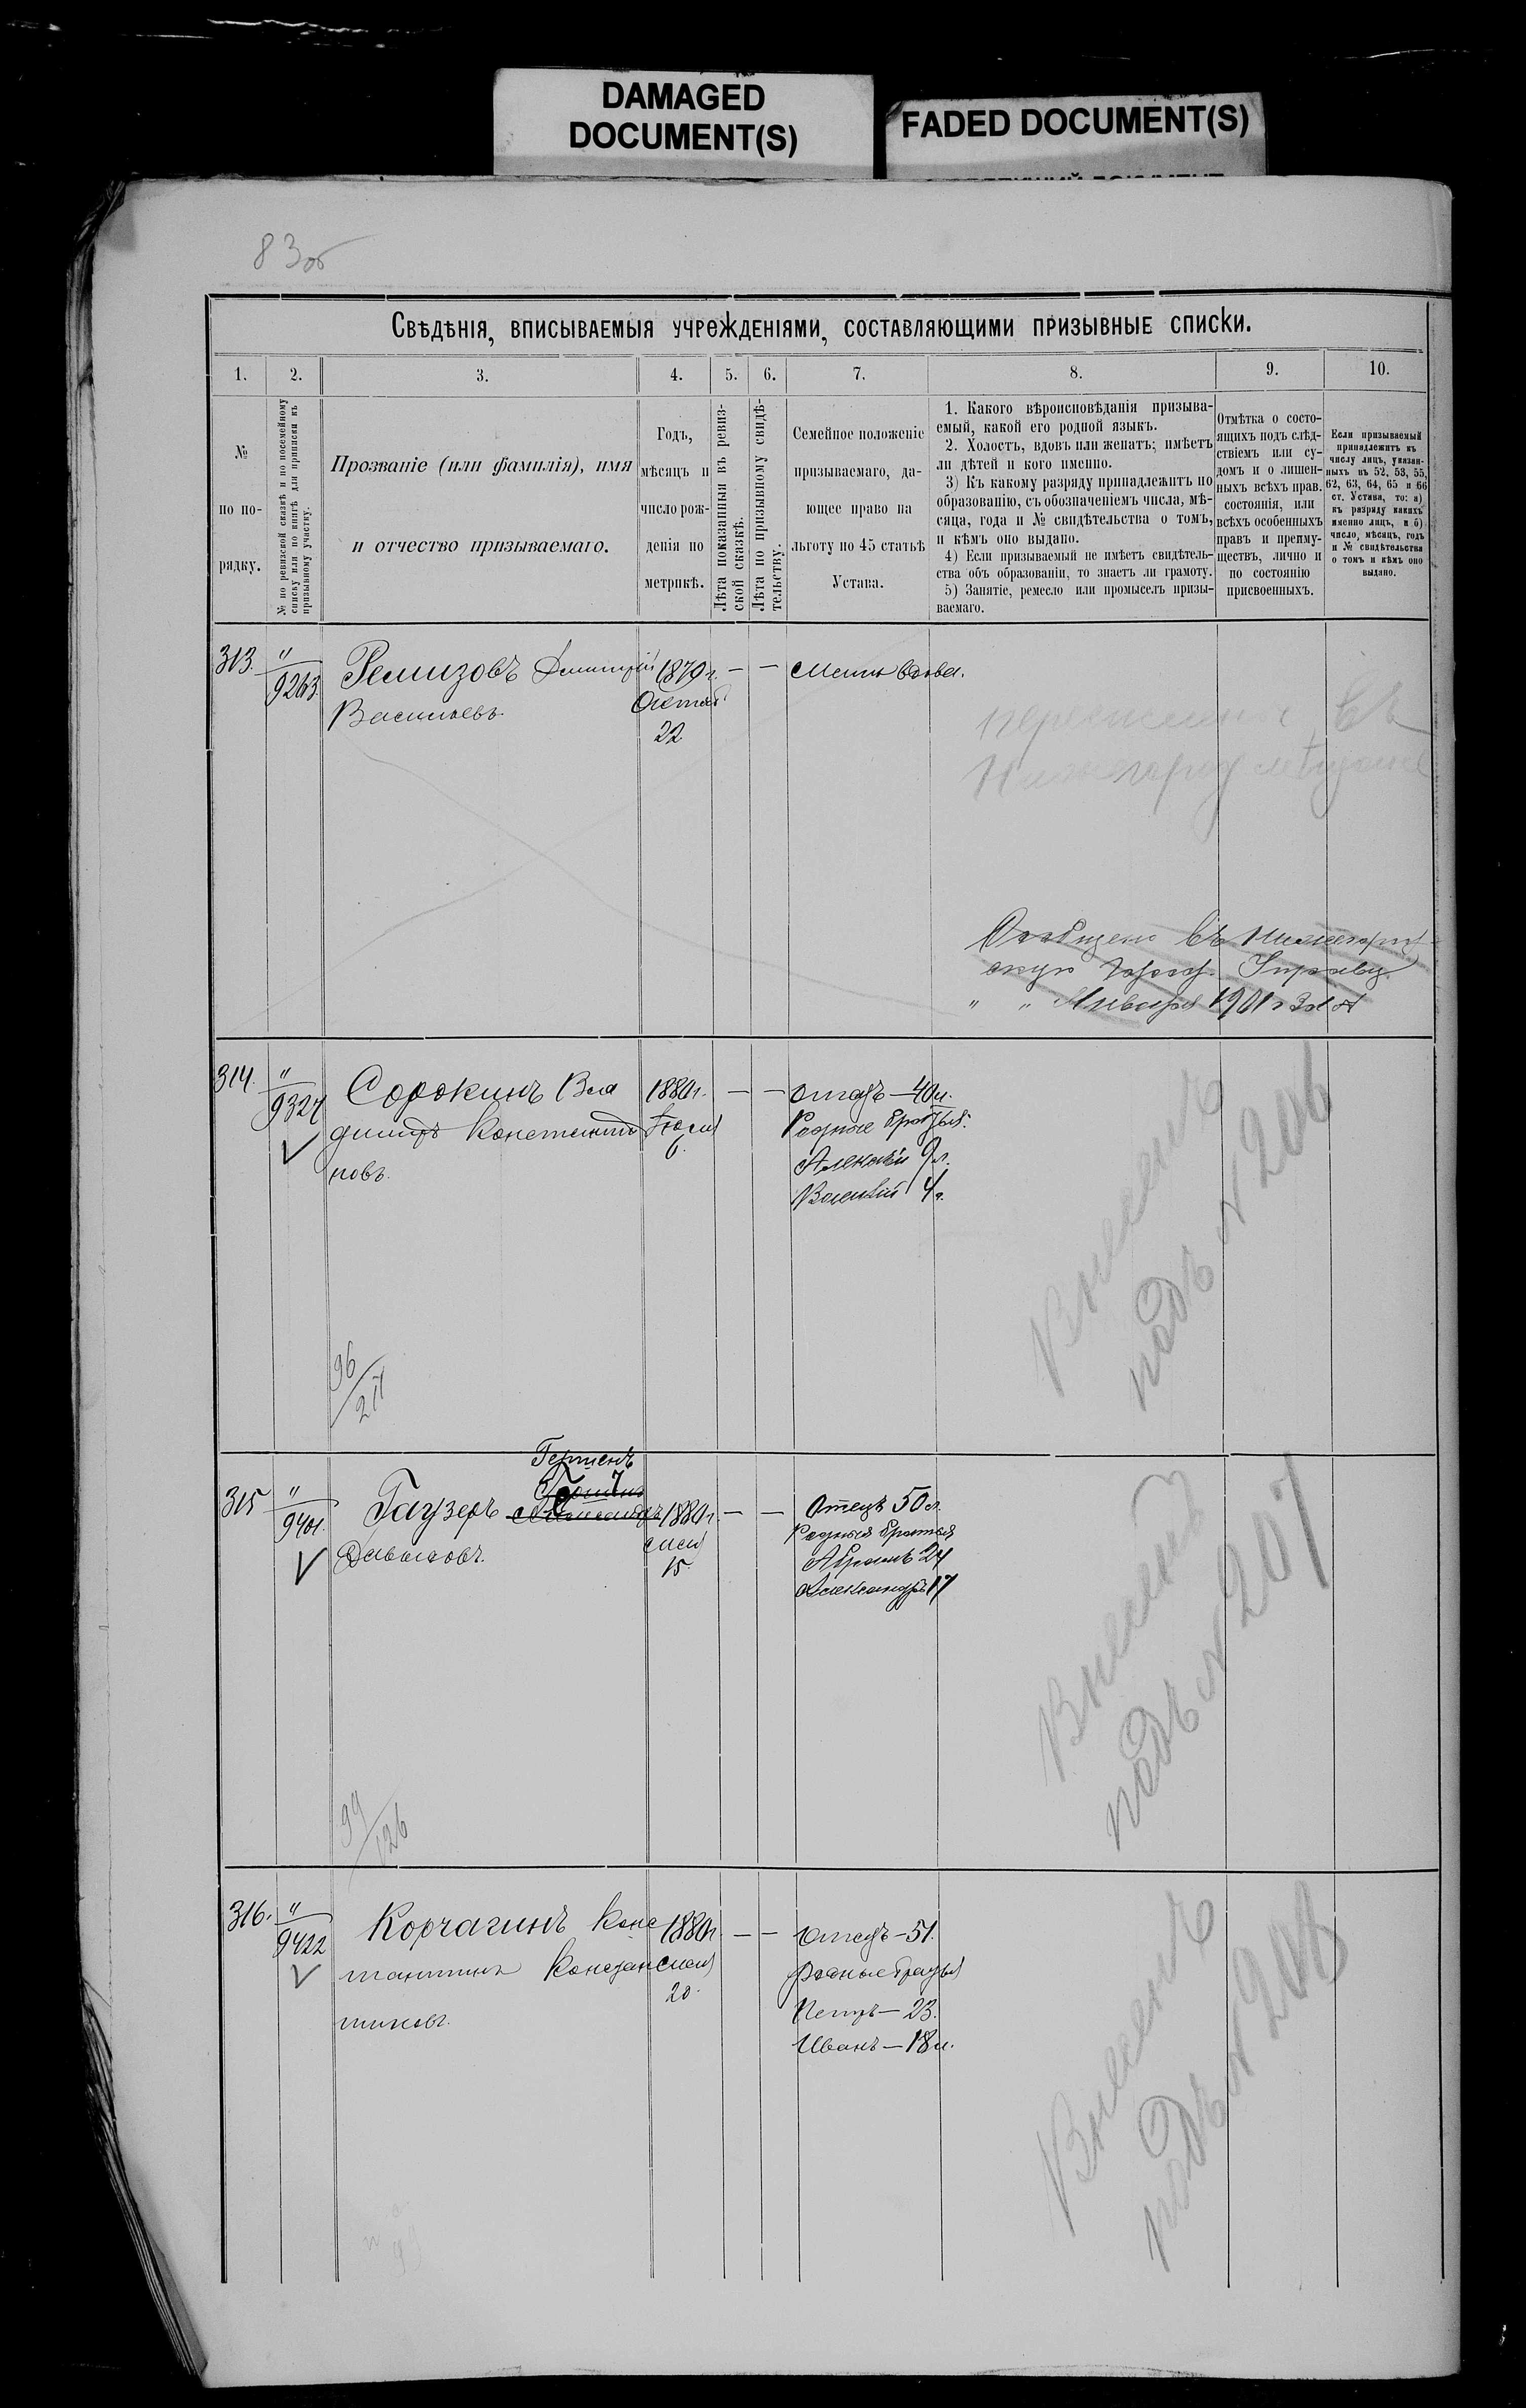 DAMAGED
DOCUMENT(S)
FADED DOCUMENT(S)
83об
Свѣдѣнія, вписываемыя учрежденіями, составляющими призывные списки.
1. 2. 3. 4. 5. 6. 7. 8. 9. 10.
№
по по-
рядку.
№ по ревизской сказкѣ и по посемейному
списку или по книгѣ для приписки къ
призывному участку.
Прозваніе (или фамилія), имя
и отчество призываемаго.
Годъ,
мѣсяцъ и
число рож-
денія по
метрикѣ.
Лѣта показанныя въ ревиз-
ской сказкѣ.
Лѣта по призывному свидѣ-
тельству.
Семейное положеніе
призываемаго, да-
ющее право на
льготу по 45 статьѣ
Устава.
1. Какого вѣроисповѣданія призыва-
емый, какой его родной языкъ.
2. Холостъ, вдовъ или женатъ; имѣетъ
ли дѣтей и кого именно.
3) Къ какому разряду принадлежитъ по
образованію, съ обозначеніемъ числа, мѣ-
сяца, года и № свидѣтельства о томъ,
и кѣмъ оно выдано.
4) Если призываемый не имѣетъ свидѣтель-
ства объ образованіи, то знаетъ ли грамоту.
5) Занятіе, ремесло или промыселъ призы-
ваемаго.
Отмѣтка о состо-
ящихъ подъ слѣд-
ствіемъ или су-
домъ и о лишен-
ныхъ всѣхъ прав.
состоянія, или
всѣхъ особенныхъ
правъ и преиму-
ществъ, лично и
по состоянію
присвоенныхъ.
Если призываемый
принадлежитъ къ
числу лицъ, указан-
ныхъ въ 52, 53, 55,
62, 63, 64, 65 и 66
ст. Устава, то: а)
къ разряду какихъ
именно лицъ, и б)
число, мѣсяцъ, годъ
и № свидѣтельства
о томъ и кѣмъ оно
выдано.
313. "
9263.
Ремизовъ Димитрій
Васильевъ.
1879 г.
Октяб
22
— —
Мать вдова.
въ
Сообщено въ Нижегород
скую Город. Управу
" " Января 1901 г
314. "
9327
Сорокинъ Вла
диміръ Константи
новъ.
1880 г.
Іюля
6.
— —
отецъ — 40 л.
Родные братья:
Алексѣй 9 л.
Василій 4 г.
Внесенъ
подъ № 206
96/211
315 "
9401.
Германъ
Гаузеръ Александръ
Давыдовъ.
1880 г.
мая
15.
— —
Отецъ 50 л.
Родные братья
Абрамъ 24
Александръ 17
Внесенъ
подъ № 207
99/126
316. "
9422
Корчагинъ Конс
тантинъ Констан
тиновъ.
1880 г.
мая
20.
— —
отецъ — 51.
Родные братья
Петръ — 23.
Иванъ — 18 л.
Внесенъ
подъ № 208